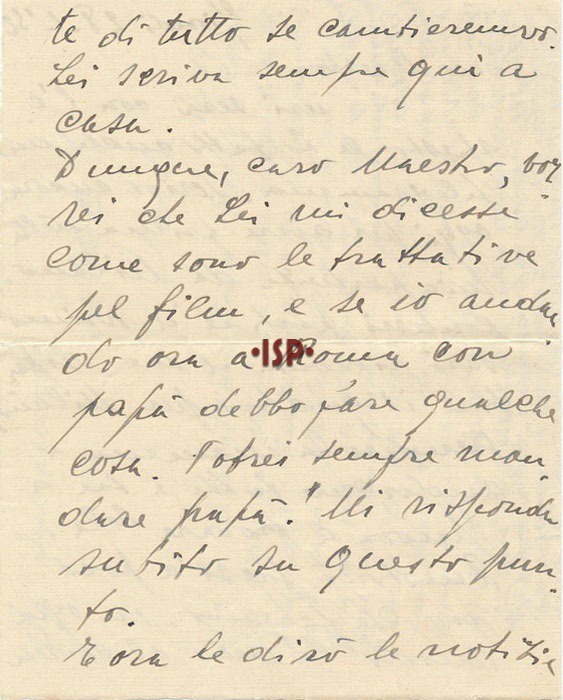 te di tutto se cambieremo.
Lei scriva sempre qui a
casa.
Dunque, caro Maestro, vor
rei che Lei mi dicesse
come sono le trattative
pel film, e se io andan
do ora a Roma con
papà debbo fare qualche
cosa. Potrei sempre man
dare papà! Mi risponda
subito su questo pun
to.
E ora le dirò le notizie
•ISP•